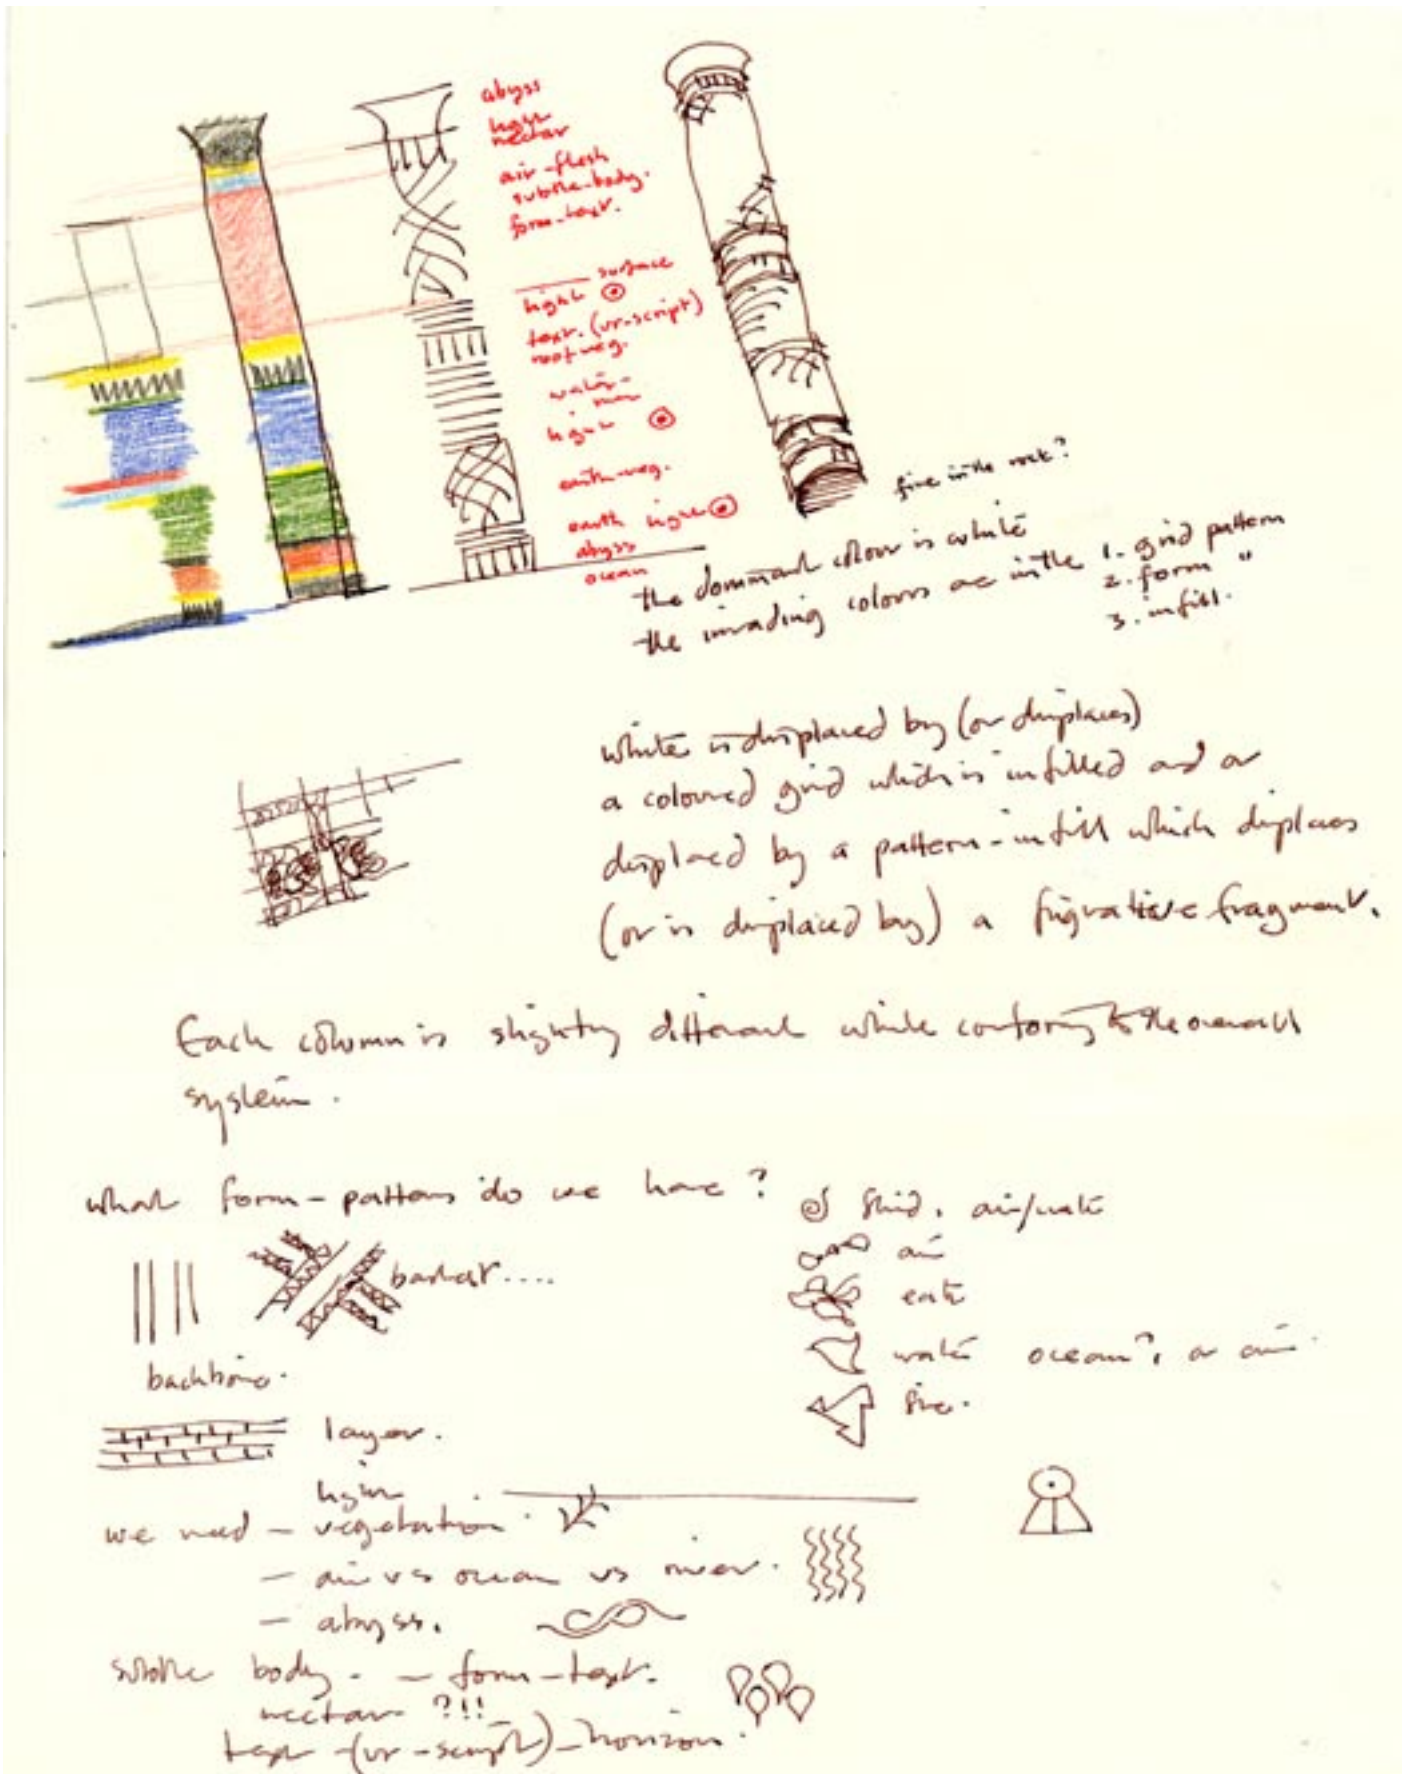 abyss
light
nectar
air-flesh
subtle-body.
form-text.
surface
light
text. (ur-script)
root veg.
water-
light
earth-veg.
earth light
abyss
ocean
fire in the rock?
the dominant colour is white
the invading colours are in the 1. grid pattern
2. form "
3. infill.
white is displaced by (or displaces)
a coloured grid which is infilled and or
displaced by a pattern-infill which displaces
(or is displaced by) a figurative fragment.
Each column is slightly different while conforming to the overall
system.
what form-patterns do we have?
fluid. air/water
air
earth
water ocean?, or air.
fire.
basket....
backbone.
layer.
light
we need - vegetation.
- air vs ocean vs river.
- abyss.
subtle body. - form-text.
nectar ?!!
text -(ur-script)-horizon.